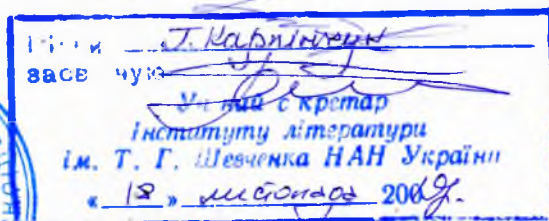 Підпис
засвідчую
Учений секретар
інституту літератури
ім. Т. Г. Шевченка НАН України
« 18 » листопада 200